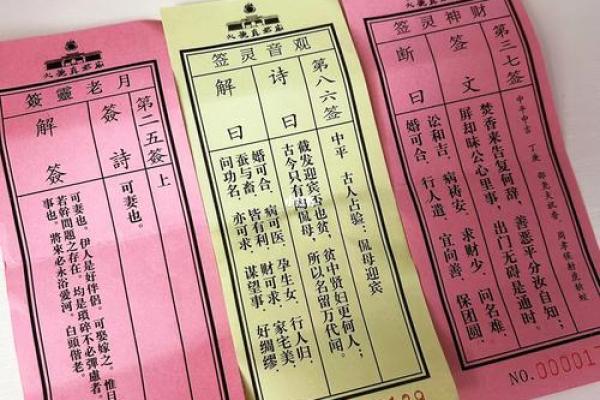 火德真君廟
月老靈簽
第二五簽 上
簽詩
可妻也。
解簽
可妻也。伊人是好伴侶。可娶嫁之。惟目
若幹問題之存在。均是瑣碎不必彈慮者。
事也。將來必永浴愛河。白頭偕老。
火德真君廟
观音灵签
第八六签
诗曰
解曰
中平 古人占验:侃母迎宾
截发迎宾也贫,贫中贤妇更何人;
古今只有陶侃母,所以名留万代闻。
婚可合,病可医,孕生女,行人归,
蚕与畜,皆有利,财可求,家宅美,
问功名,亦可求,谋望事,好绸缪
火德真君廟
财神灵签
第三七签
签文
断曰
中平中吉 丁庚 邵尧夫祝香 周孝侯射虎斩蛟
焚香来告复何辞,善恶平分汝自知;
屏却昧公心里事,出门无碍是通时。
讼和吉,病祷安,求财少,问名难,
婚可合,行人遣,宜向善,保团圆,
NO.000017